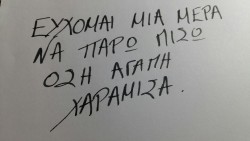 ΕΥΧΟΜΑΙ ΜΙΑ ΜΕΡΑ
ΝΑ ΠΑΡΩ ΠΙΣΩ
ΟΣΗ ΑΓΑΠΗ
ΧΑΡΑΜΙΣΑ.